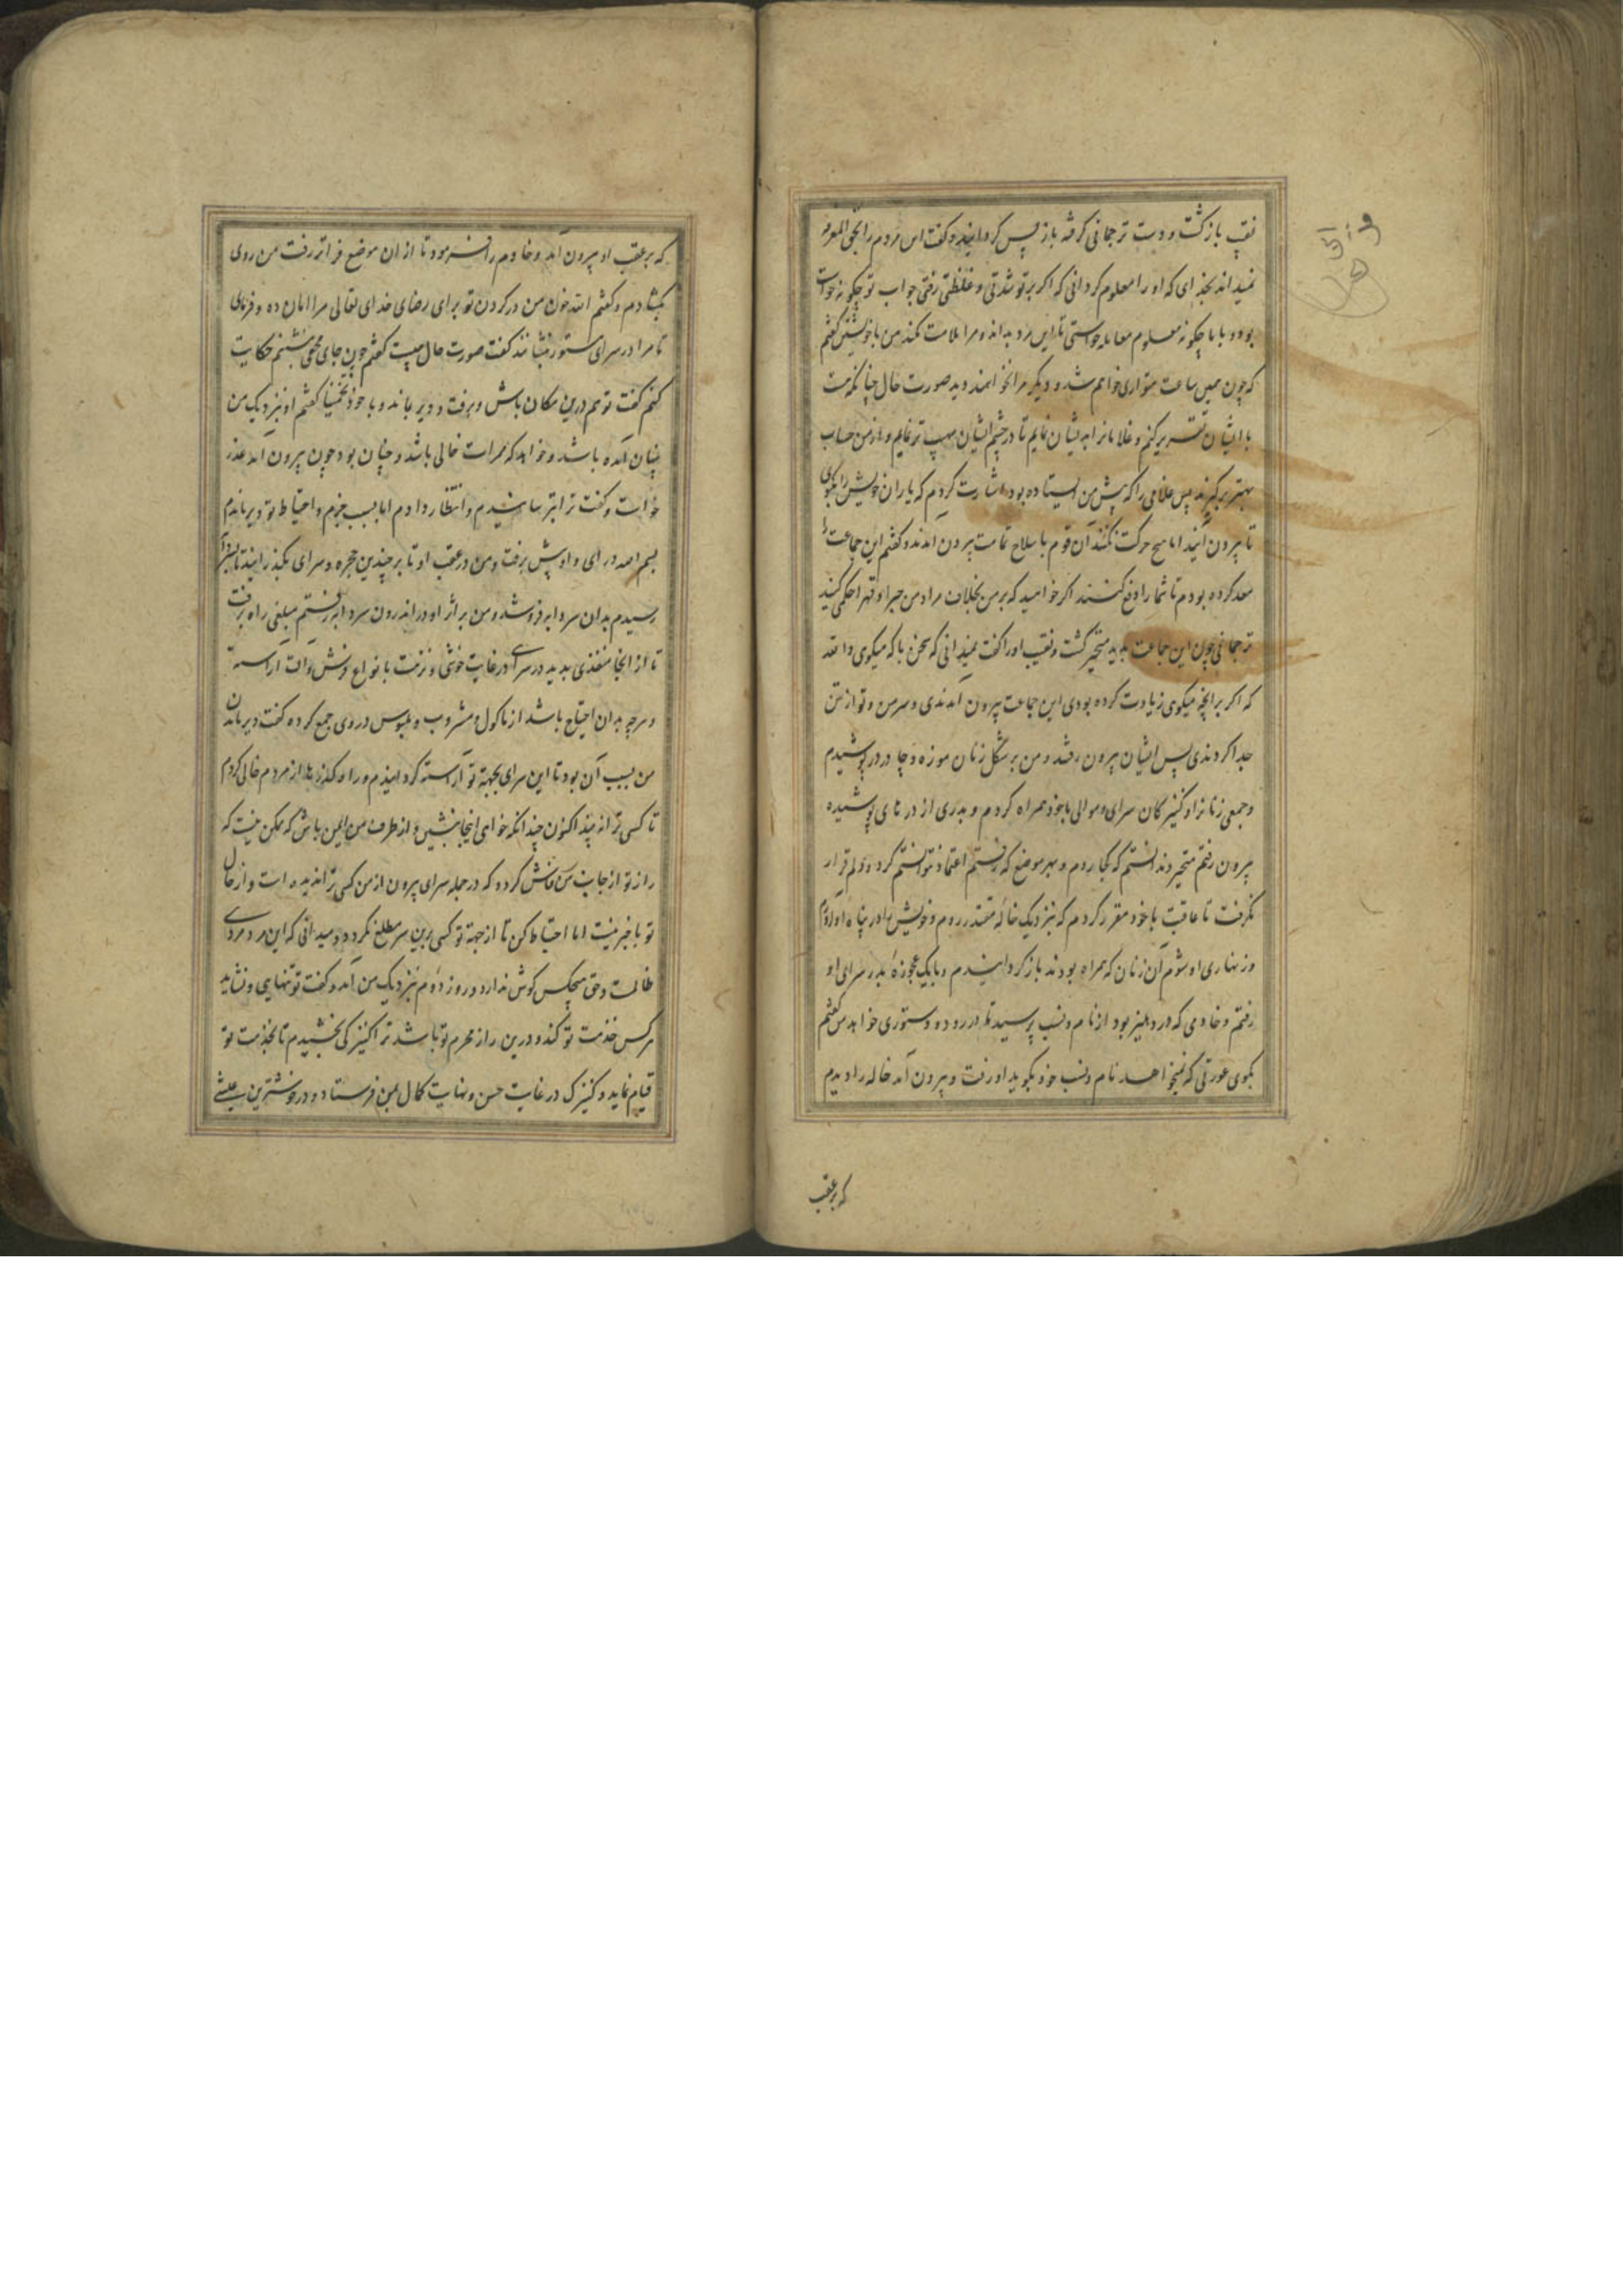 نقیب بازگشت و دست ترجمانی گرفته باز پس گردانید و گفت این مردم را بحق المعرفه
نمیداند بخدای که او را معلوم گردانی که اگر بر تو شدتی و غلظتی رفتی جواب تو چگونه خواست
بود و با ما چگونه معامله خواستی تا این مرد بداند و مرا ملامت نکند من با خویشتن گفتم
که چون همین ساعت متواری خواهم شد و دیگر مرا نخواهند دید صورت حال چنانکه هست
با ایشان تقریر کنم و غلامانرا بدیشان نمایم تا در چشم ایشان مهیب تر نمایم و از من حساب
بهتر برگیرند پس غلامی را که پیش من ایستاده بود اشارت کردم که یاران خویش را بگوی
تا بیرون آیند اما هیچ حرکت نکنند آن قوم با سلاح تمامت بیرون آمدند و گفتم این جماعت را
معد کرده بودم تا شما را دفع کنند اگر خواهید که بر من بخلاف مراد من جبرا و قهرا حکمی کنید
ترجمانی چون این جماعت بدید متحیر گشت و نقیب او را گفت نمیدانی که سخن با که میگوی والله
که اگر بر آنچه میگوی زیادت کرده بودی این جماعت بیرون آمدندی و سر من و تو از تن
جدا کردندی پس ایشان بیرون رفتند و من بر شکل زنان موزه و چادر در پوشیدم
و جمعی زنانرا و کنیزکان سرای و موالی با خود همراه کردم و بدری از درهای پوشیده
بیرون رفتم متحیر و ندانستم که کجا روم و بهر موضع که رفتم اعتماد نتوانستم کرد و دلم قرار
نگرفت تا عاقبت با خود مقرر کردم که بنزدیک خاله مقتدر روم و خویش را در پناه او آورم
و زنهاری او شوم آن زنان که همراه بودند باز گردانیدم و با یک عجوزه بدر سرای او
رفتم و خادمی که در دهلیز بود از نام و نسب پرسید تا در رود و دستوری خواهد من گفتم
بگوی عورتی که نمیخواهد نام و نسب خود بگوید او رفت و بیرون آمد خاله را دیدم
که بر عقب
که بر عقب او بیرون آمد و خادم را فرمود تا از ان موضع فراتر رفت من روی
بگشادم و گفتم الله خون من در گردن تو برای رضای خدای تعالی مرا امان ده و فرمای
تا مرا در سرای ستور بنشانند گفت صورت حال چیست گفتم چون جای مخفی بنشینم حکایت
کنم گفت تو هم درین مکان باش و برفت و دیر بماند و با خود تخمینا گفتم او نزدیک من
پنهان آمده باشد و خواهد که ممرات خالی باشد و چنان بود چون بیرون آمد عذر
خواست و گفت ترا بترسانیدم و انتظار دادم اما بسبب حزم و احتیاط تو دیر ماندم
بسم الله در ای و او پیش برفت و من در عقب او تا بر چندین حجره و سرای بگذرانید تا بسردابه
رسیدم بدان سردابه فرو شد و من بر اثر او در اندرون سردابه رفتم مبلغی راه برفت
تا از انجا منفذی بدید در سرایی در غایت خوشی و نزهت با انواع فرش و آلت آراسته
و هرچه بدان احتیاج باشد از ماکول و مشروب و ملبوس در وی جمع کرده گفت دیر ماندن
من بسبب آن بود تا این سرای بجهة تو آراسته گردانیدم و راه گذرها از مردم خالی کردم
تا کسی ترا نه بیند اکنون چندانکه خواهی اینجا بنشین و از طرف من ایمن باش که ممکن نیست که
راز تو از جانب من فاش گردد که در جمله سرای بیرون از من کسی ترا ندیده است و از حال
تو با خبر نیست اما احتیاط کن تا از جهة تو کسی برین سر مطلع نگردد و میدانی که این مرد مردی
ظالمست و حق هیچکس گوش ندارد و روز دوم نزدیک من آمد و گفت تو تنهایی و نشاید
هر کس خدمت تو کند و درین راز محرم تو باشد ترا کنیزکی بخشیدم تا بخدمت تو
قیام نماید و کنیزک در غایت حسن و نهایت کمال بمن فرستاد و در خوشترین عیشی